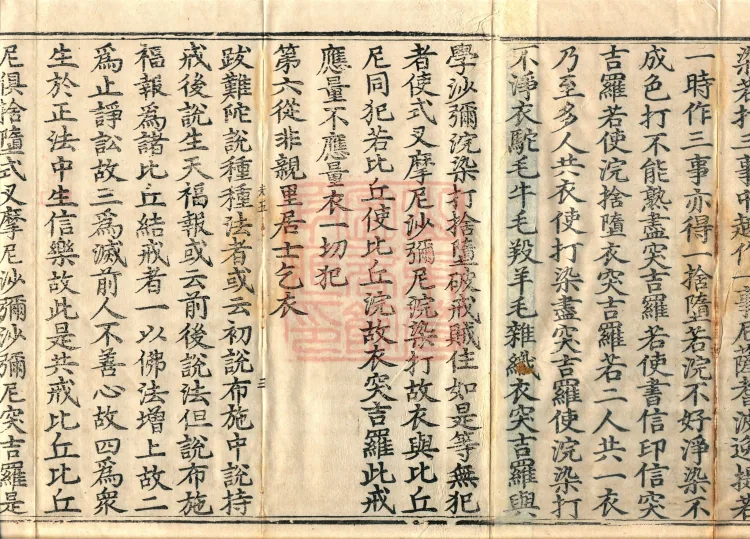 染若打三事中趣作一事尼薩耆波逸提若
一時作三事亦得一捨墮若浣不好淨染不
成色打不能熟盡突吉羅若使書信印信突
吉羅若使浣捨墮衣突吉羅若二人共一衣
乃至多人共衣使打染盡突吉羅使浣染打
不淨衣駝毛牛毛羖羊毛雜織衣突吉羅與
學沙彌浣染打捨墮破戒賊住如是等無犯
者使式叉摩尼沙彌尼浣染打故衣與比丘
尼同犯若比丘使比丘浣故衣突吉羅此戒
應量不應量衣一切犯
第六從非親里居士乞衣
三
跋難陀說種種法者或云初說布施中說持
戒後說生天福報或云前後說法但說布施
福報為諸比丘結戒者一以佛法增上故二
為止諍訟故三為滅前人不善心故四為衆
生於正法中生信樂故此是共戒比丘比丘
尼俱捨墮式叉摩尼沙彌沙彌尼突吉羅是